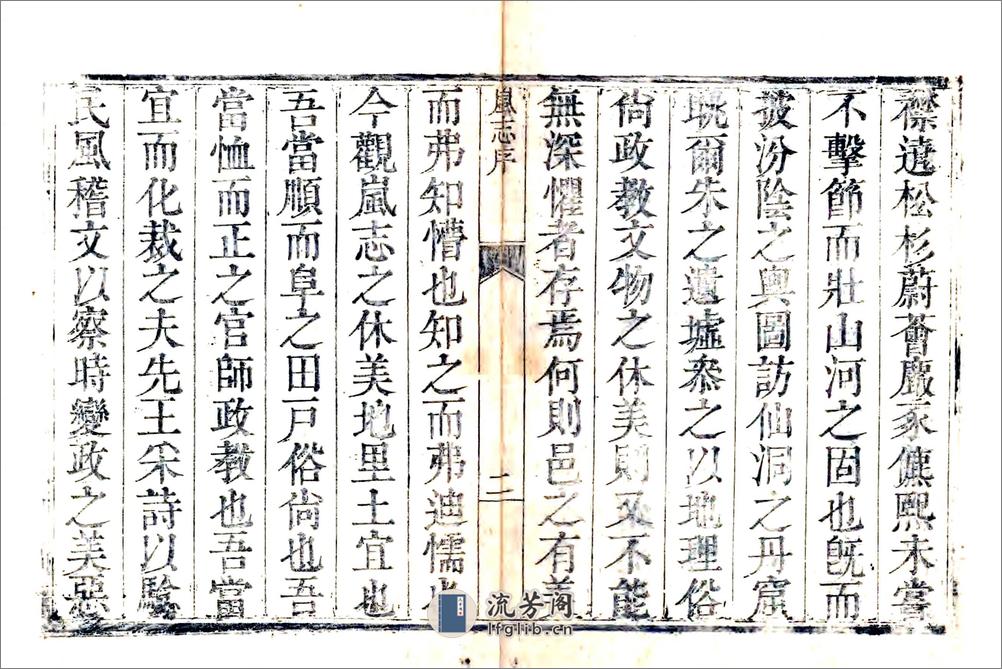 襟遶松杉蔚薈嚴冢僬熙未嘗
不擊節而壯山河之固也旣而
披汾陰之輿圖訪仙洞之丹窟
眺爾朱之遺墟叅之以地理俗
尙政教文物之休美則又不能
無深懼者存焉何則邑之有美
嵐志序 二
而弗知懵也知之而弗迪懦也
今觀嵐志之休美地里土宜也
吾當順而阜之田戸俗尙也吾
當恤而正之官師政教也吾當
宜而化裁之夫先王采詩以驗
民風稽文以察時變政之美惡
流芳阁
lfglib.cn